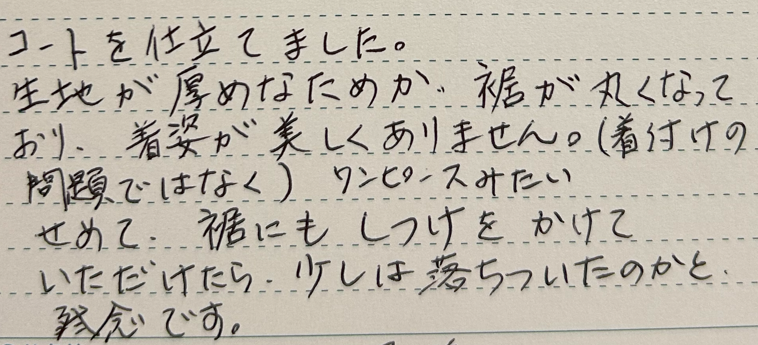 コートを仕立てました。
生地が厚めなためか、裾が丸くなって
おり、着姿が美しくありません。(着付けの
問題ではなく) ワンピースみたい
せめて、裾にもしつけをかけて
いただけたら、少しは落ちついたのかと、
残念です。